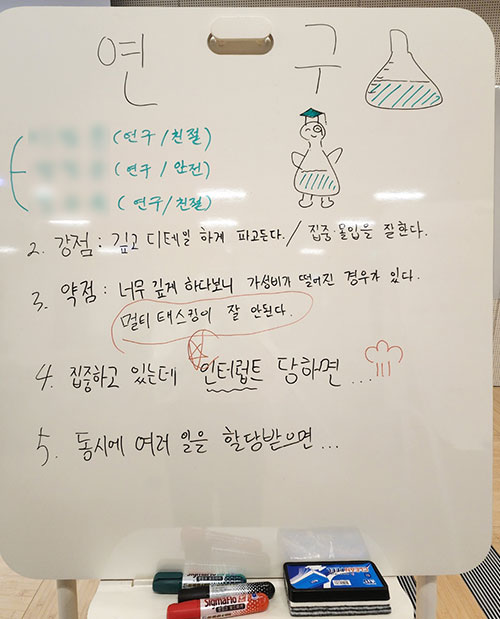 연구
(연구/친절)
(연구/안전)
(연구/친절)
2. 강점 : 깊고 디테일 하게 파고든다. / 집중·몰입을 잘한다.
3. 약점 : 너무 깊게 하다보니 가성비가 떨어진 경우가 있다.
멀티 태스킹이 잘 안된다.
4. 집중하고 있는데 인터럽트 당하면...
5. 동시에 여러 일을 할당받으면...
SigmaFlo
SigmaFlo